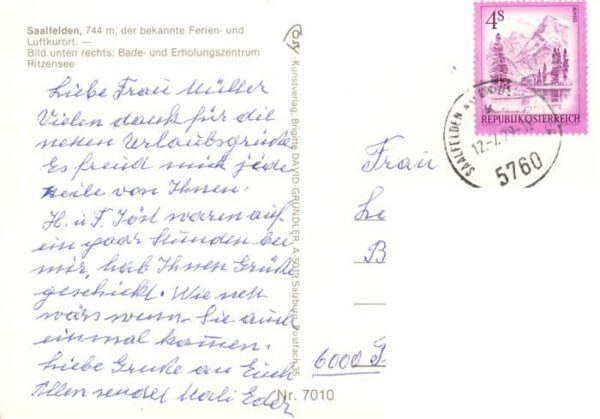 Saalfelden, 744 m, der bekannte Ferien- und
Luftkurort. —
Bild unten rechts: Bade- und Erholungszentrum
Ritzensee
Liebe Frau Müller
Vielen dank für die
netten Urlaubsgrüße
Es freud mich jede
zeile von Ihnen.
H. u F. Jöst waren auf
ein paar Stunden bei
mir, hab Ihnen Grüße
geschickt. Wie nett
wärs wenn Sie auch
einmal kommen.
Liebe Gruße an Euch
Allen sendet Mali Eder
Kunstverlag, Brigitte DAVID-GRUNDLER, A-5013 Salzburg, Postfach 35
Nr. 7010
4 S
REPUBLIK ÖSTERREICH
SAALFELDEN AM
12.-7.79
5760
Frau
Le
B
6000